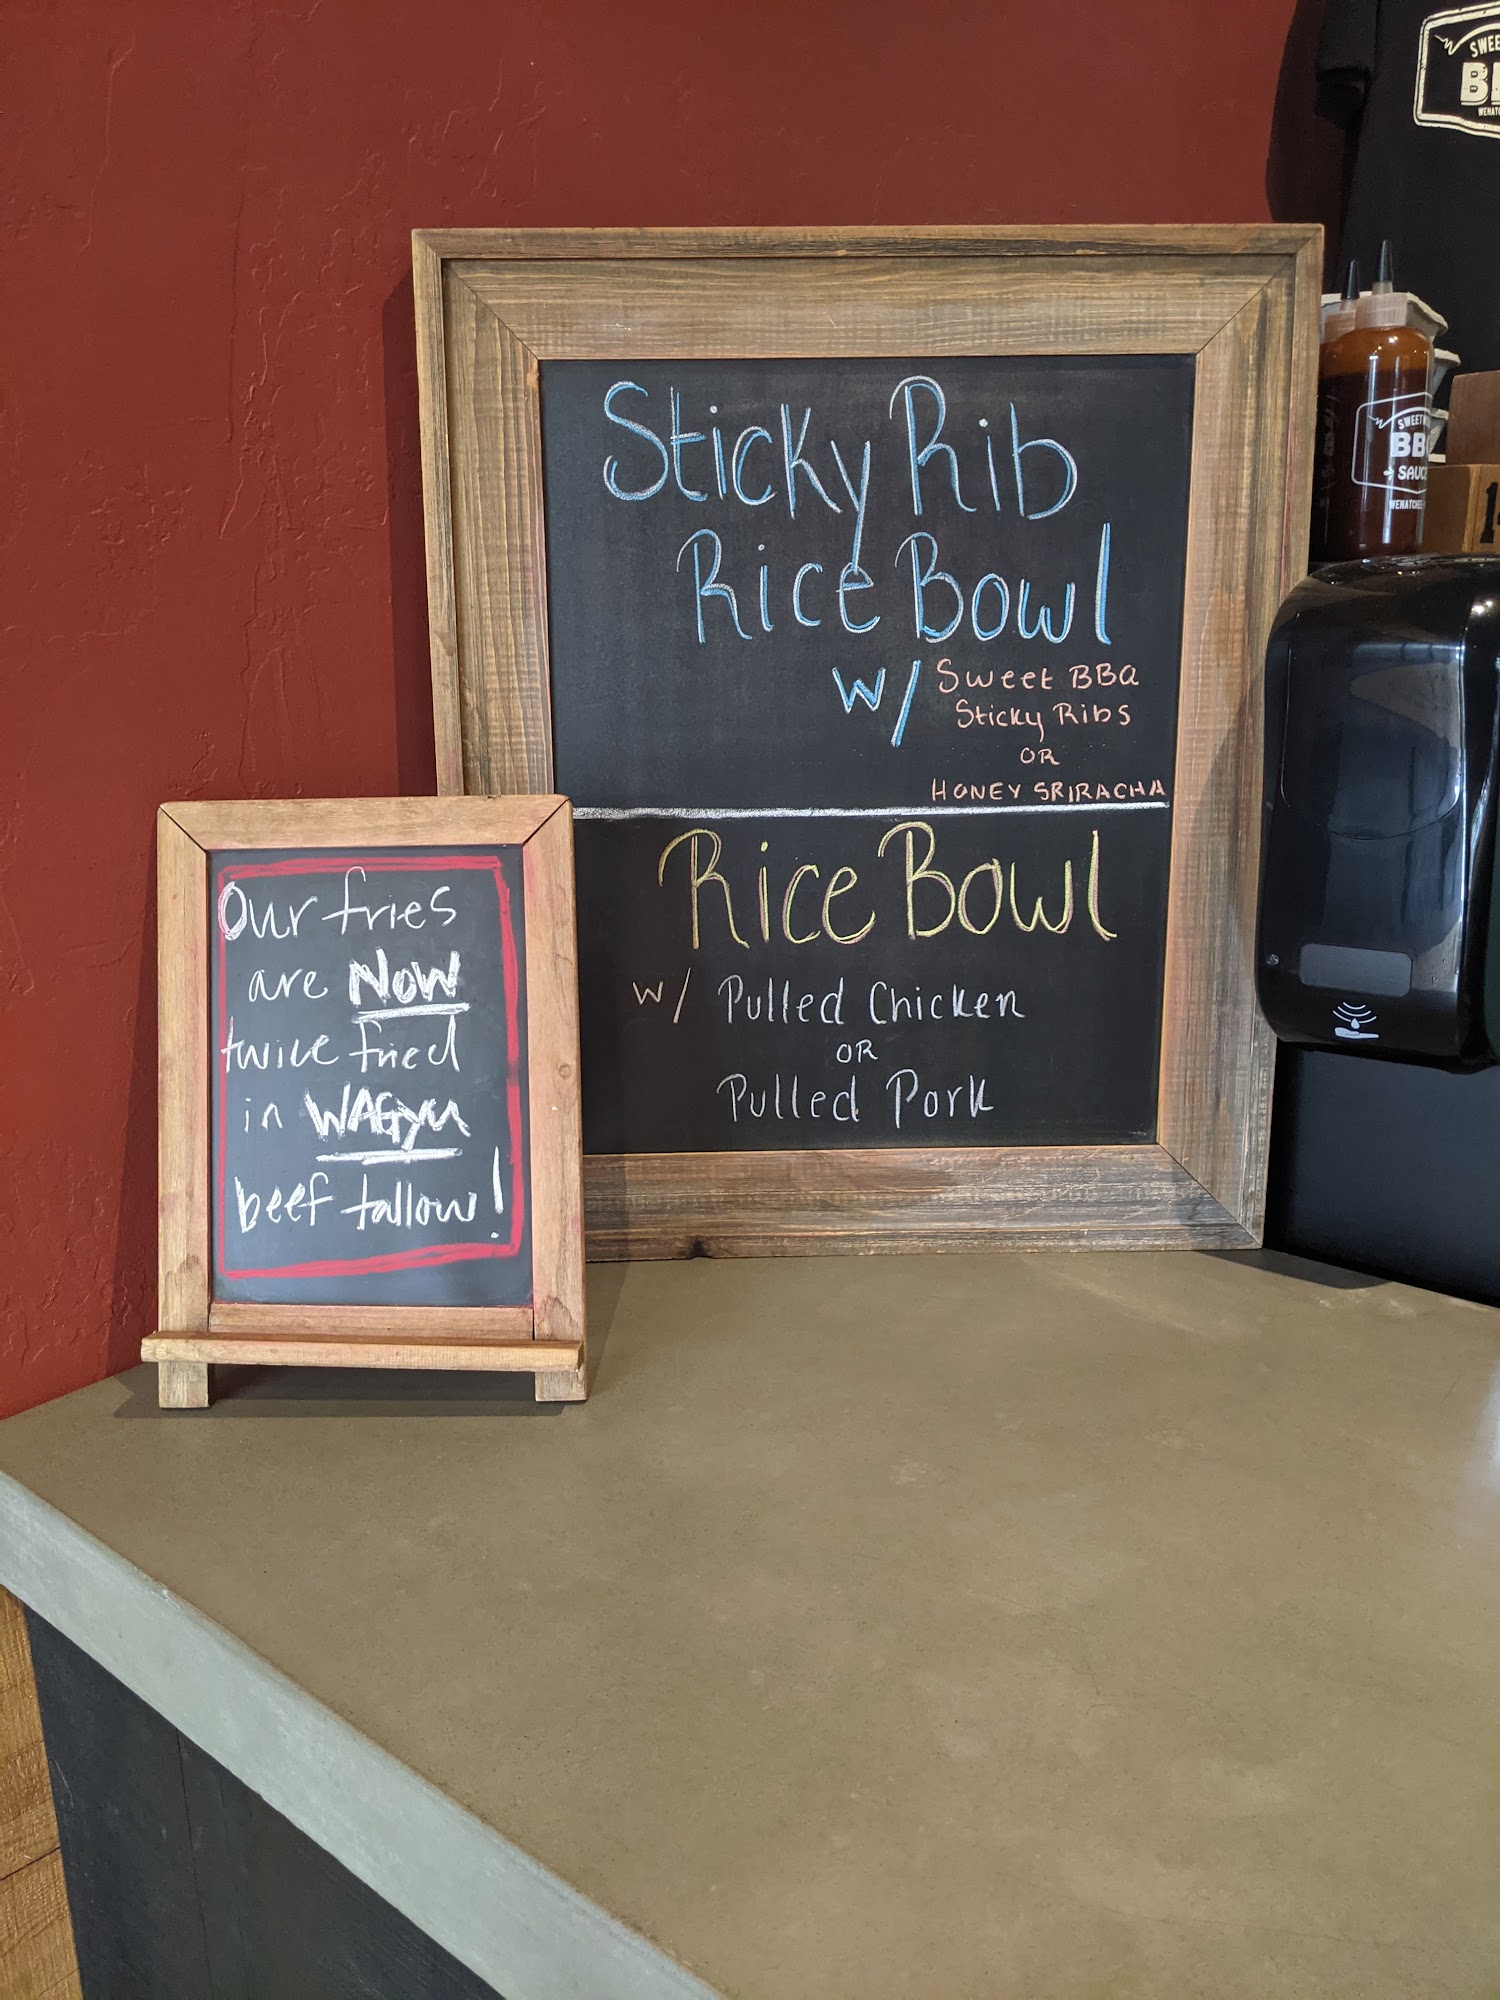 Sticky Rib
Rice Bowl
w/ Sweet BBQ
Sticky Ribs
OR
HONEY SRIRACHA
Rice Bowl
w/ Pulled Chicken
OR
Pulled Pork
Our fries
are NOW
twice fried
in WAGYU
beef tallow!
BBQ
SAUCE